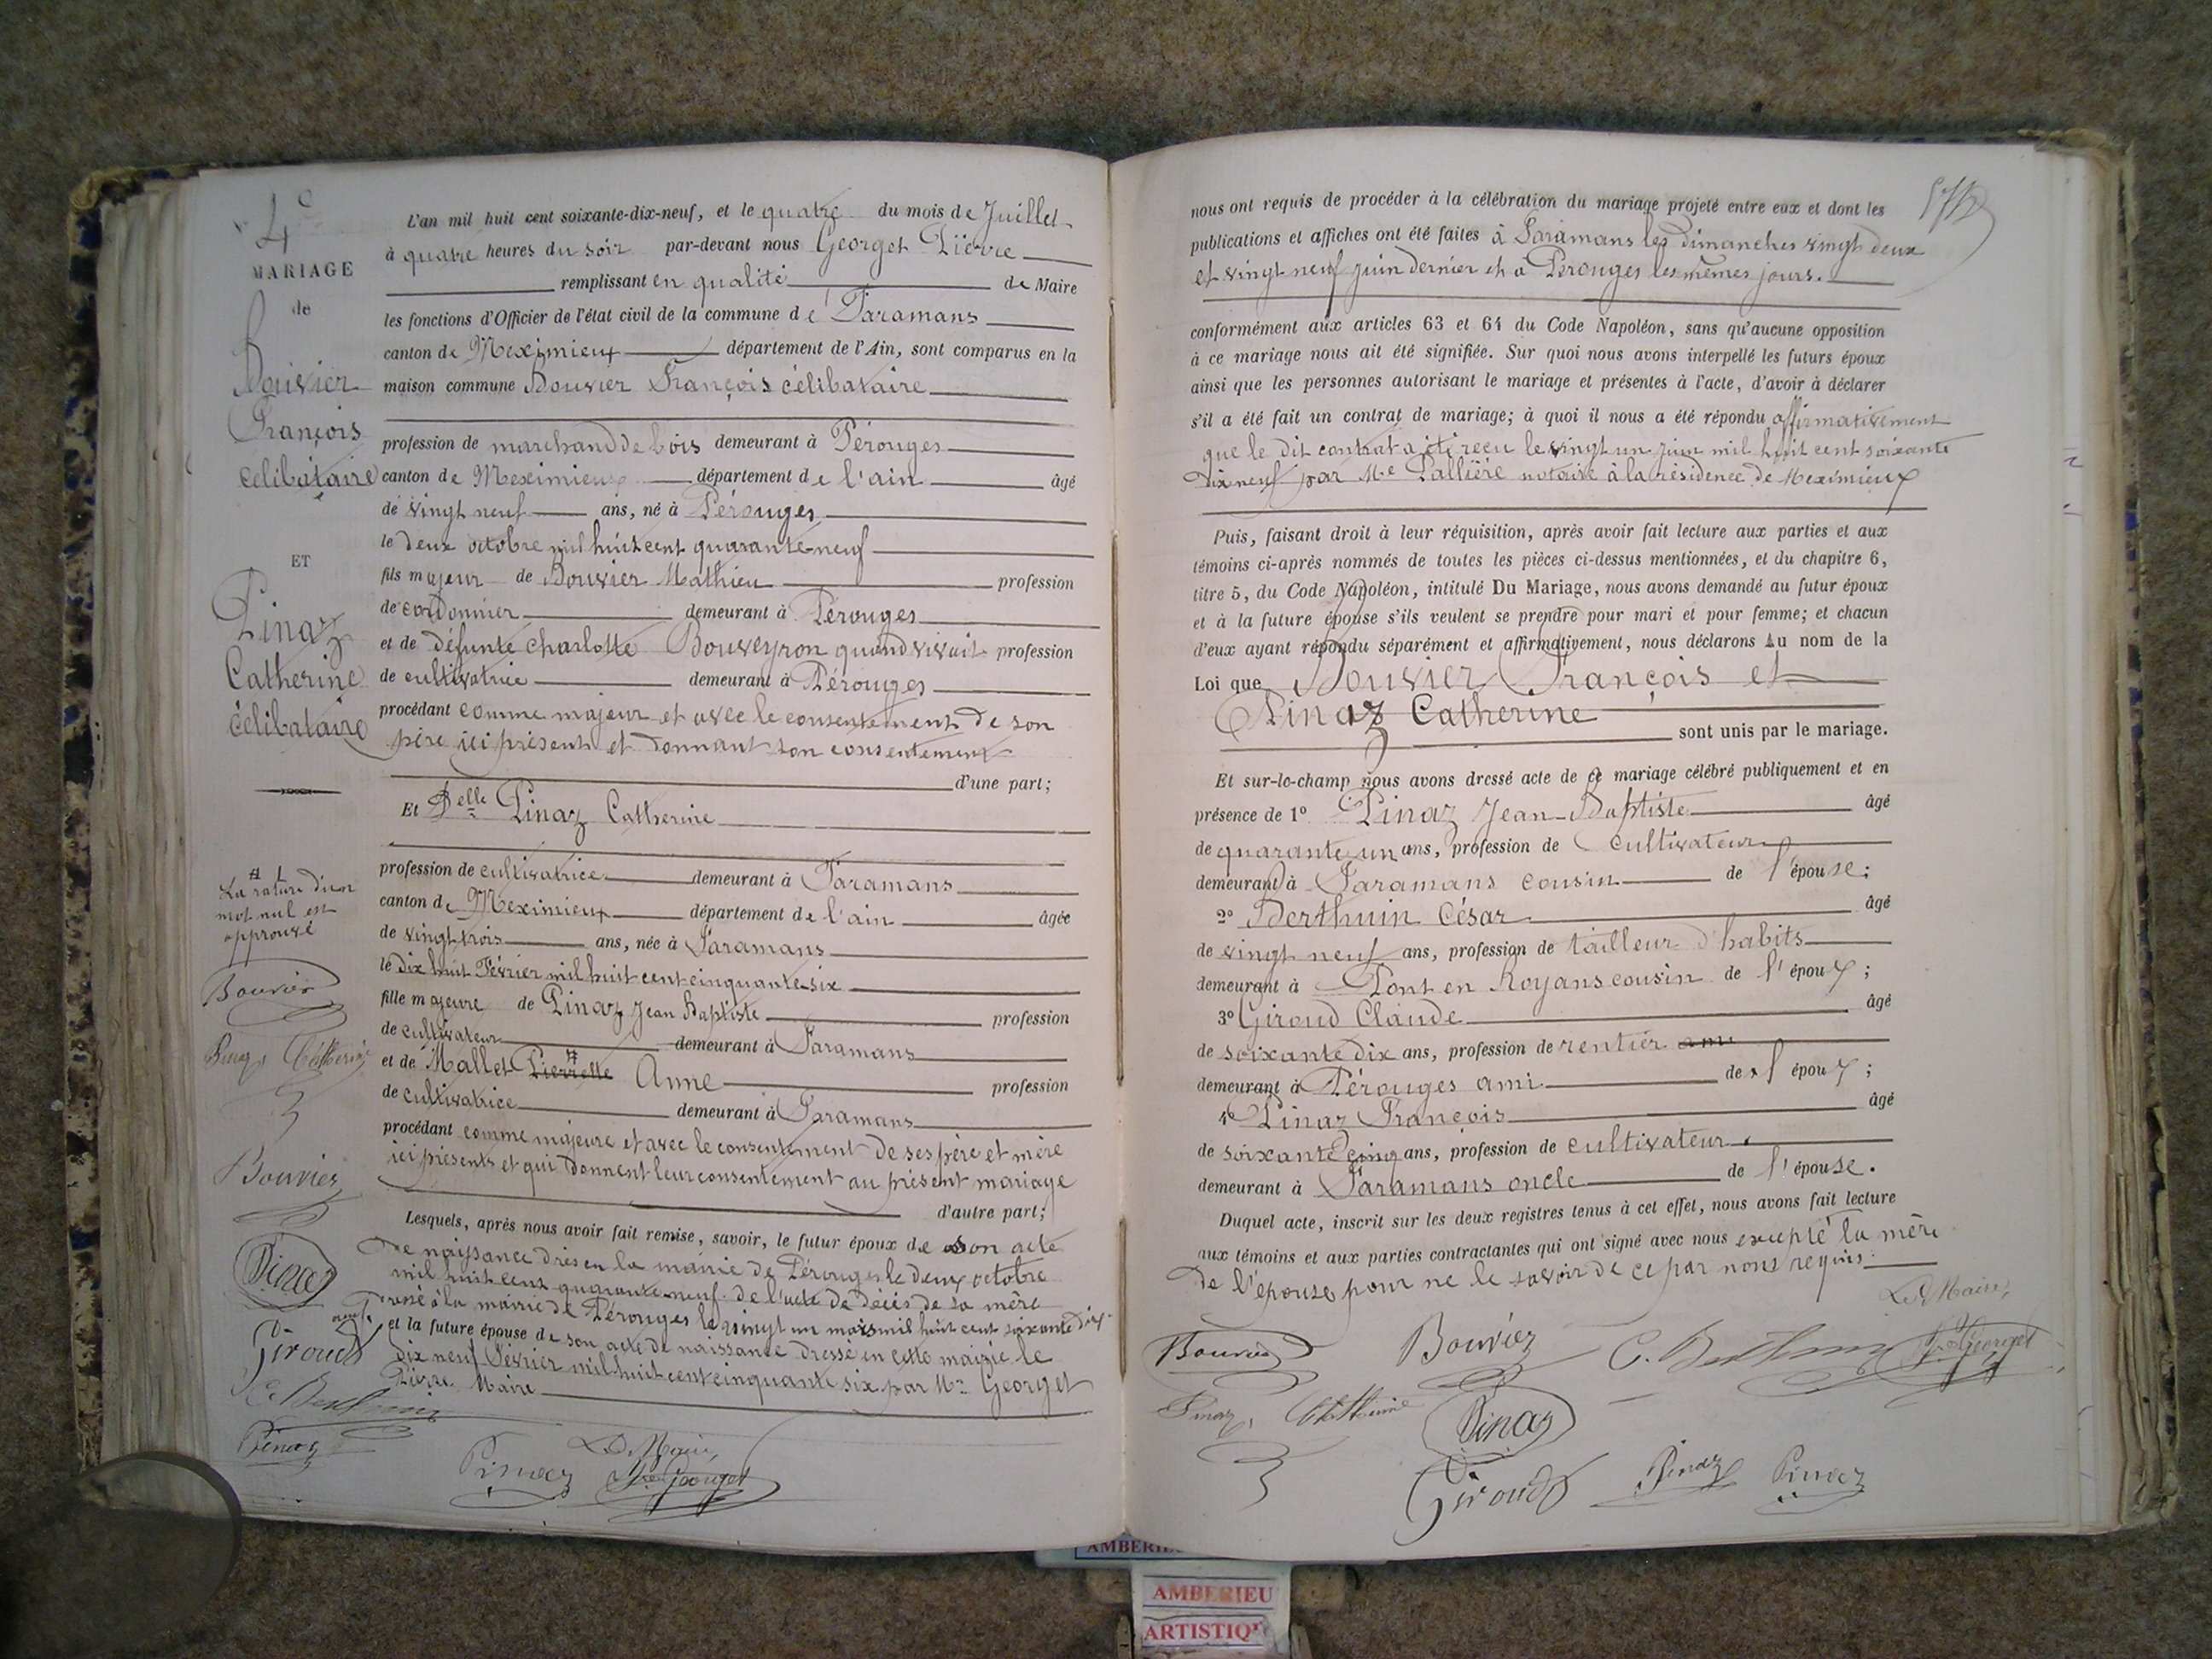 4e
MARIAGE
de
Bouvier
François
célibataire
ET
Pinaz
Catherine
célibataire
La rature d'un
mot nul est
approuvé
Bouvier
Pinaz Catherine
Bouvier
Pinaz
Giroud
C. Berthuin
Pinaz
L'an mil huit cent soixante-dix-neuf, et le quatre du mois de Juillet
à quatre heures du soir par-devant nous Georget Pierre
remplissant en qualité de Maire
les fonctions d'Officier de l'état civil de la commune de Faramans
canton de Meximieux département de l'Ain, sont comparus en la
maison commune Bouvier François célibataire
profession de marchand de bois demeurant à Pérouges
canton de Meximieux département de l'ain âgé
de vingt neuf ans, né à Pérouges
le deux octobre mil huit cent quarante-neuf
fils majeur de Bouvier Mathieu profession
de cordonnier demeurant à Pérouges
et de défunte Charlotte Bouveyron quand vivait profession
de cultivatrice demeurant à Pérouges
procédant comme majeur et avec le consentement de son
père ici présent et donnant son consentement
d'une part;
Et Delle Pinaz Catherine
profession de cultivatrice demeurant à Faramans
canton de Meximieux département de l'ain âgée
de vingt trois ans, née à Faramans
le dix huit Février mil huit cent cinquante-six
fille majeure de Pinaz Jean Baptiste profession
de cultivateur demeurant à Faramans
et de Mallet Pierrette Anne profession
de cultivatrice demeurant à Faramans
procédant comme majeure et avec le consentement de ses père et mère
ici présents et qui donnent leur consentement au présent mariage
d'autre part;
Lesquels, après nous avoir fait remise, savoir, le futur époux de son acte
de naissance dressé en la mairie de Pérouges le deux octobre
mil huit cent quarante-neuf. de l'acte de décès de sa mère
dressé à la mairie de Pérouges le vingt un mars mil huit cent soixante dix
neuf. et la future épouse de son acte de naissance dressé en cette mairie le
dix neuf Février mil huit cent cinquante six par Mr Georget
Pierre Maire
Pinaz Le Maire,
Pre Georget
nous ont requis de procéder à la célébration du mariage projeté entre eux et dont les
publications et affiches ont été faites à Faramans les dimanches vingt deux
et vingt neuf juin dernier et à Pérouges les mêmes jours.
conformément aux articles 63 et 64 du Code Napoléon, sans qu'aucune opposition
à ce mariage nous ait été signifiée. Sur quoi nous avons interpellé les futurs époux
ainsi que les personnes autorisant le mariage et présentes à l'acte, d'avoir à déclarer
s'il a été fait un contrat de mariage; à quoi il nous a été répondu affirmativement
que le dit contrat a été reçu le vingt un juin mil huit cent soixante
dix neuf par Me Pallière notaire à la résidence de Meximieux
Puis, faisant droit à leur réquisition, après avoir fait lecture aux parties et aux
témoins ci-après nommés de toutes les pièces ci-dessus mentionnées, et du chapitre 6,
titre 5, du Code Napoléon, intitulé Du Mariage, nous avons demandé au futur époux
et à la future épouse s'ils veulent se prendre pour mari et pour femme; et chacun
d'eux ayant répondu séparément et affirmativement, nous déclarons Au nom de la
Loi que Bouvier François et
Pinaz Catherine
sont unis par le mariage.
Et sur-le-champ nous avons dressé acte de ce mariage célébré publiquement et en
présence de 1° Pinaz Jean-Baptiste âgé
de quarante un ans, profession de cultivateur
demeurant à Faramans cousin de l'épouse;
2° Berthuin César âgé
de vingt neuf ans, profession de tailleur d'habits
demeurant à Pont en Royans cousin de l'époux;
3° Giroud Claude âgé
de soixante dix ans, profession de rentier ami
demeurant à Pérouges ami de l'époux;
4° Pinaz François âgé
de soixante cinq ans, profession de cultivateur
demeurant à Faramans oncle de l'épouse.
Duquel acte, inscrit sur les deux registres tenus à cet effet, nous avons fait lecture
aux témoins et aux parties contractantes qui ont signé avec nous excepté la mère
de l'épouse pour ne le savoir de ce par nous requis.
Le Maire,
Bouvier Bouvier C. Berthuin Pre Georget
Pinaz Catherine Pinaz
Giroud Pinaz Pinaz
AMBERIEU
ARTISTIQ